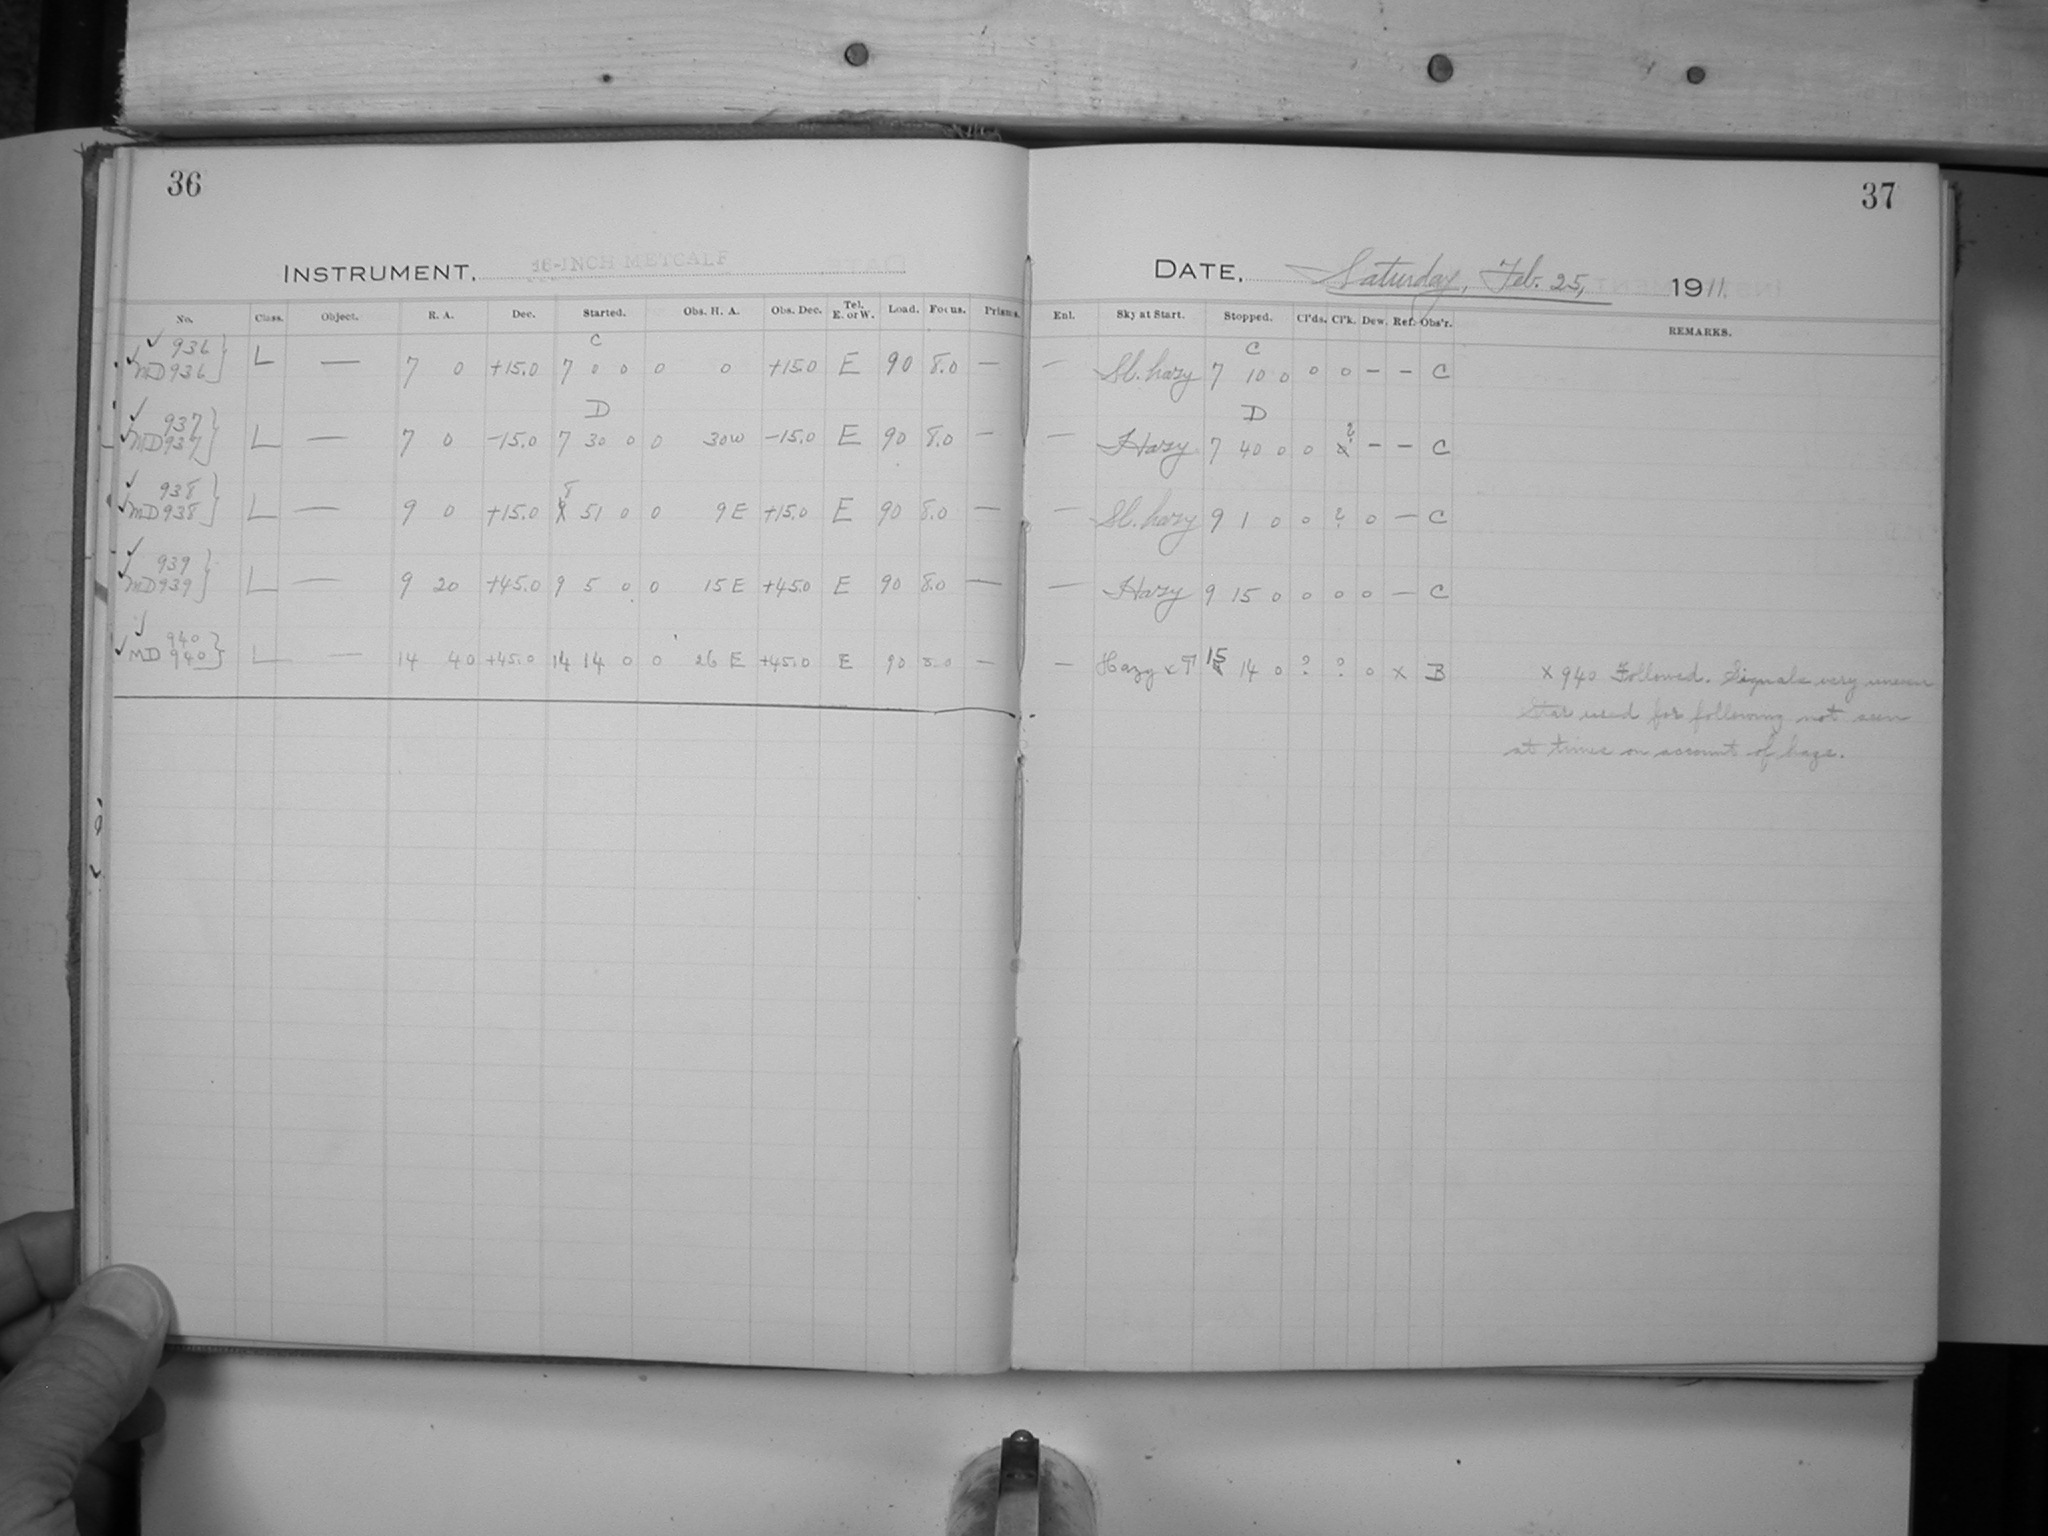 36
37
INSTRUMENT, 16-INCH METCALF
DATE, Saturday, Feb. 25, 1911.
No. Class. Object. R. A. Dec. Started. Obs. H. A. Obs. Dec. Tel. E. or W. Load. Focus. Prisms. Enl. Sky at Start. Stopped. Cl'ds. Cl'k. Dew. Ref. Obs'r. REMARKS.
C C
✓ 936
✓ MD936 } L — 7 0 +15.0 7 0 0 0 0 +15.0 E 90 8.0 — — Sl. hazy 7 10 0 0 0 — — C
D D
✓ 937
✓ MD937 } L — 7 0 -15.0 7 30 0 0 30W -15.0 E 90 8.0 — — Hazy 7 40 0 0 ? — — C
✓ 938
✓ MD938 } L — 9 0 +15.0 8 51 0 0 9 E +15.0 E 90 8.0 — — Sl. hazy 9 1 0 0 ? 0 — C
✓ 939
✓ MD939 } L — 9 20 +45.0 9 5 0 0 15 E +45.0 E 90 8.0 — — Hazy 9 15 0 0 0 0 — C
✓ 940
✓ MD 940 } L — 14 40 +45.0 14 14 0 0 26 E +45.0 E 90 8.0 — — Hazy 15 14 0 ? ? 0 x B x 940 Followed. Signals very uneven
Star used for following not seen
at times on account of haze.